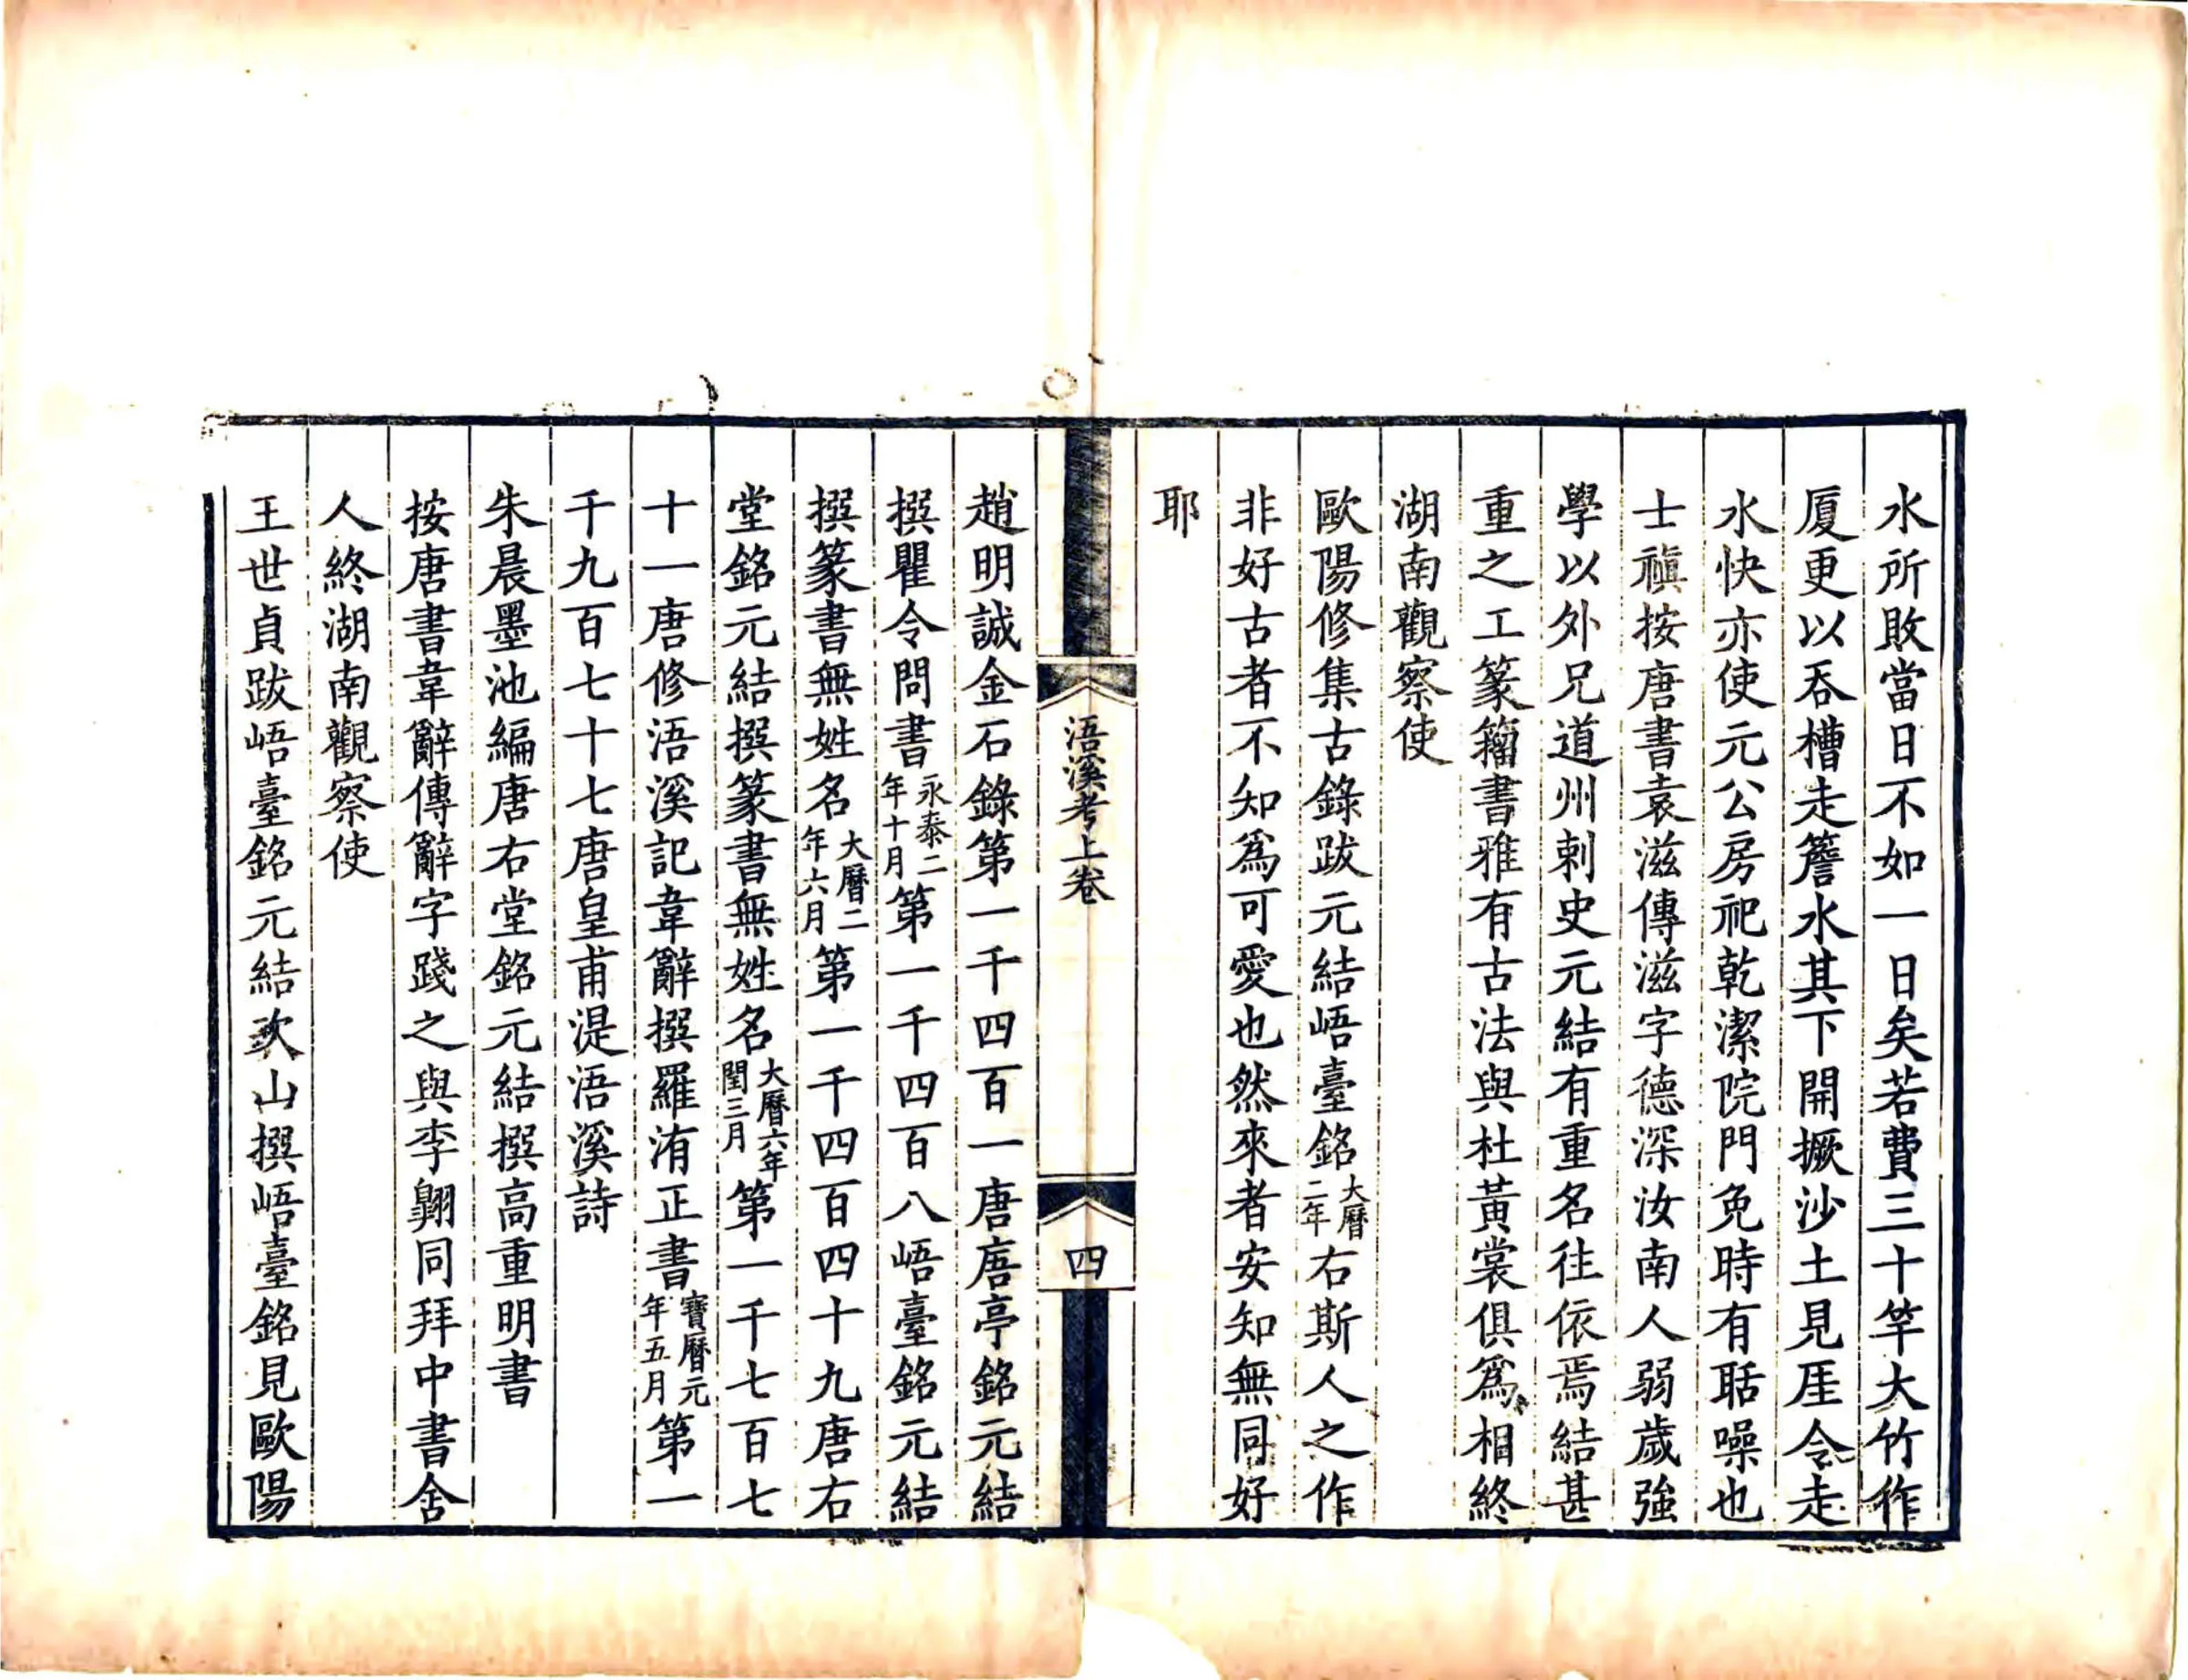 水所敗當日不如一日矣若費三十竿大竹作
厦更以吞槽走簷水其下開撅沙土見厓令走
水快亦使元公房祀乾潔院門免時有聒噪也
士禛按唐書袁滋傳滋字德深汝南人弱歲強
學以外兄道州刺史元結有重名往依焉結甚
重之工篆籀書雅有古法與杜黃裳俱爲相終
湖南觀察使
歐陽修集古錄跋元結峿臺銘大曆二年右斯人之作
非好古者不知爲可愛也然來者安知無同好
耶
浯溪考上卷
四
趙明誠金石錄第一千四百一唐㾗亭銘元結
撰瞿令問書永泰二年十月第一千四百八峿臺銘元結
撰篆書無姓名大曆二年六月第一千四百四十九唐右
堂銘元結撰篆書無姓名大曆六年閏三月第一千七百七
十一唐修浯溪記韋辭撰羅洧正書寶曆元年五月第一
千九百七十七唐皇甫湜浯溪詩
朱晨墨池編唐右堂銘元結撰高重明書
按唐書韋辭傳辭字踐之與李翺同拜中書舍
人終湖南觀察使
王世貞跋峿臺銘元結次山撰峿臺銘見歐陽